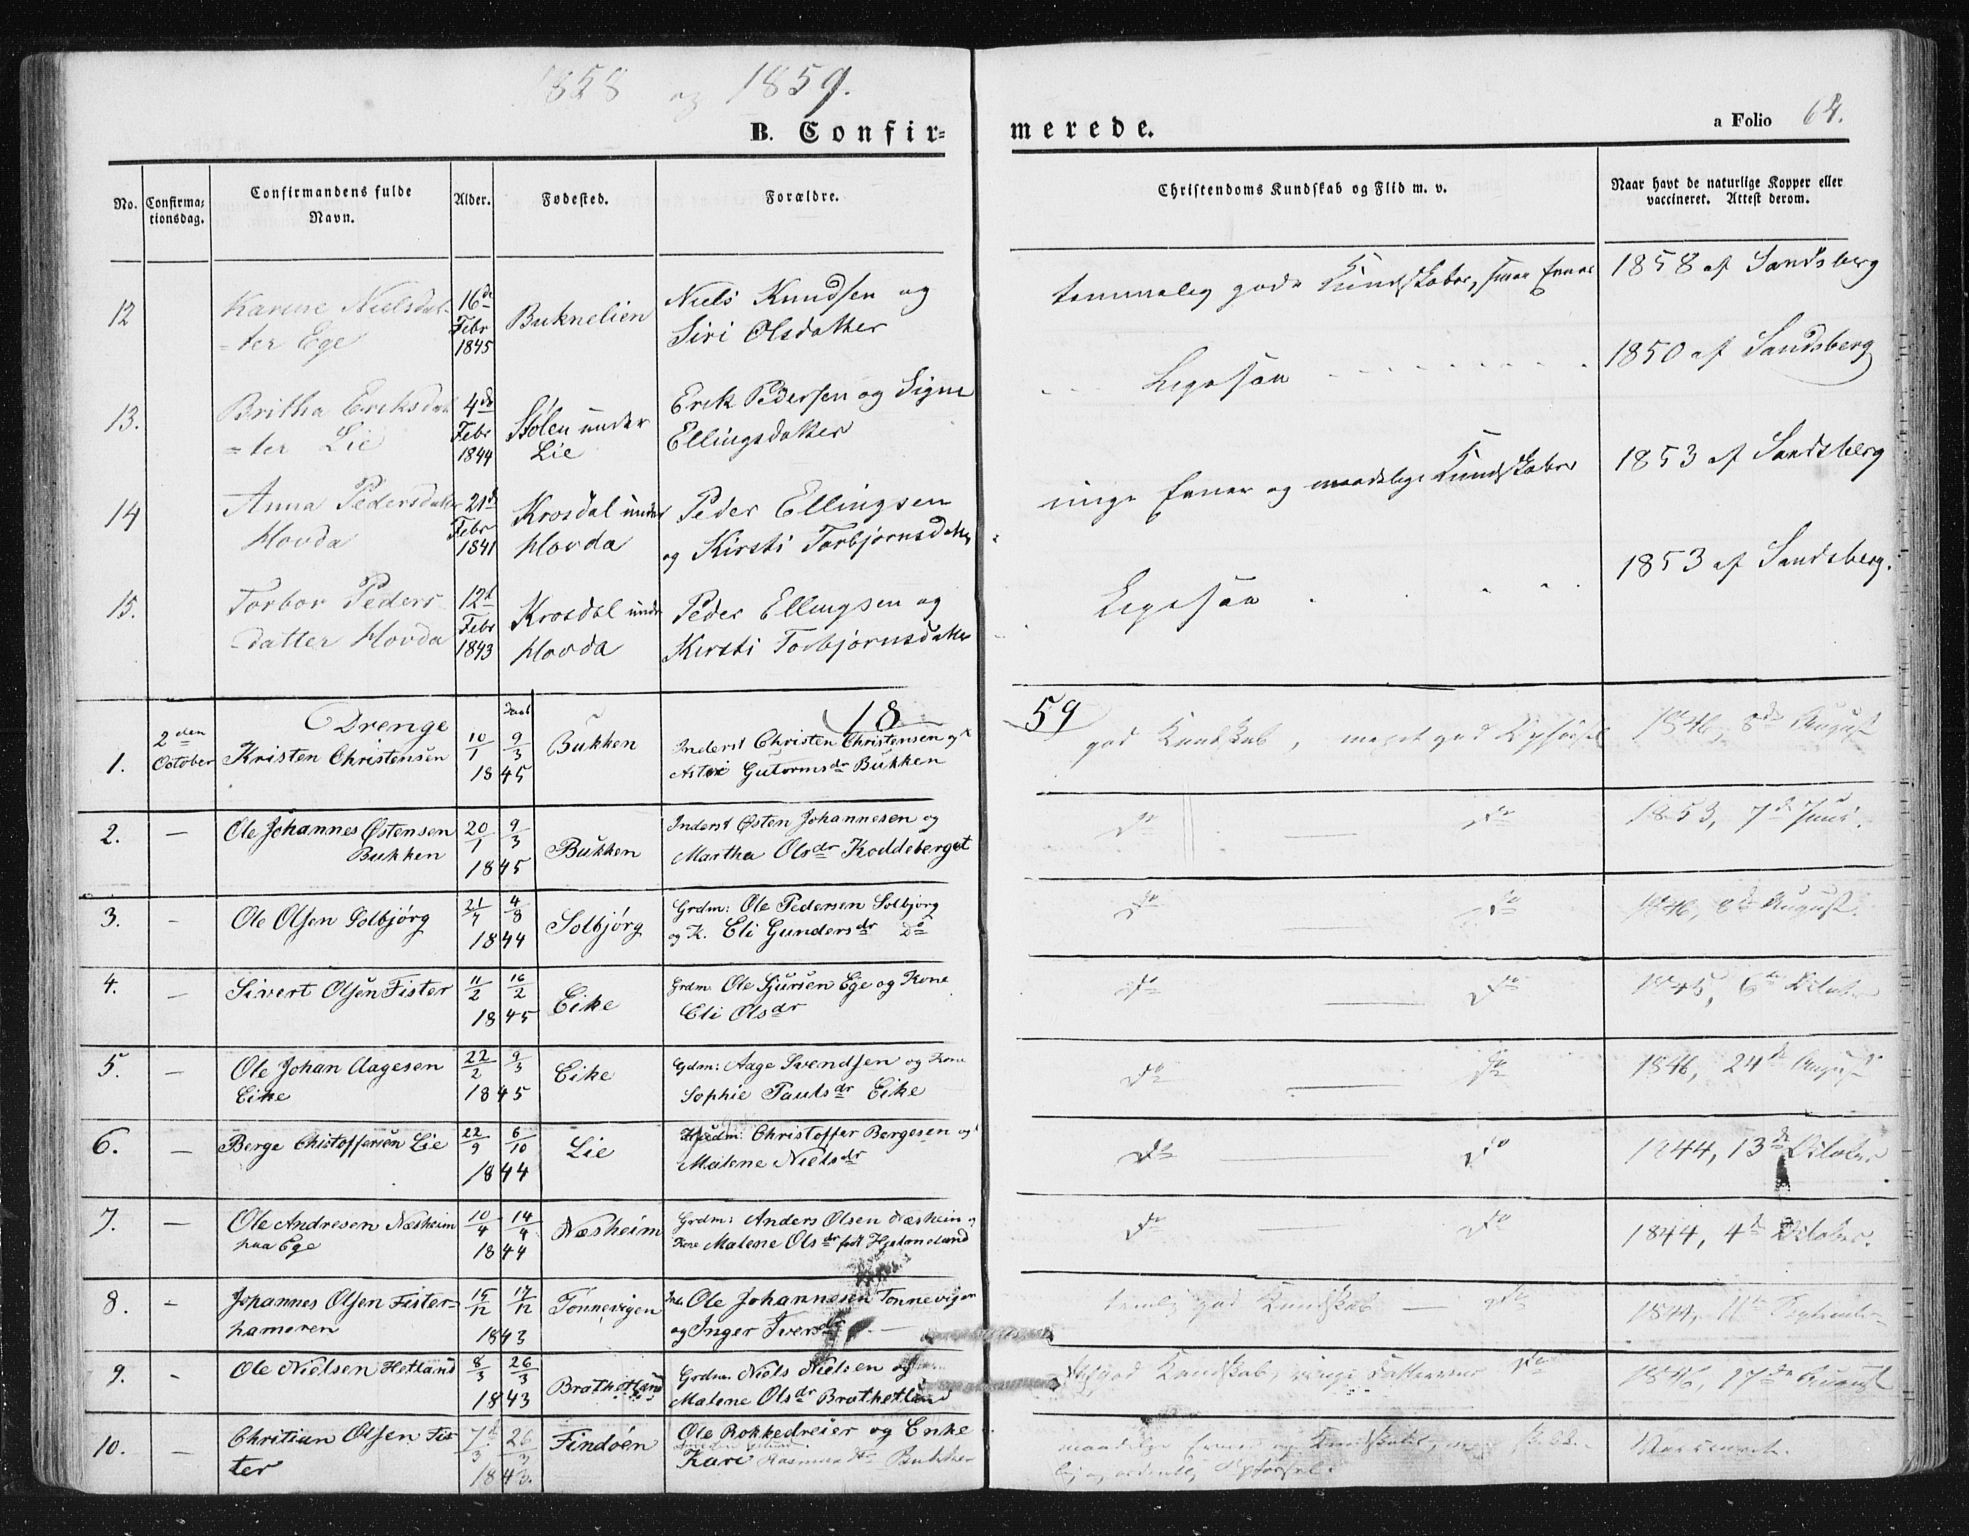 1858 og 1859.
B. Confir=
merede.
a Folio 64.
No.
Confirma=
tionsdag.
Confirmandens fulde
Navn.
Alder.
Fødested.
Forældre.
Christendoms Kundskab og Flid m. v.
Naar havt de naturlige Kopper eller
vaccineret. Attest derom.
12
Karine Nielsdat-
=ter Ege
16de
Febr
1845
Buknelien
Niels Knudsen og
Siri Olsdatter
temmelig gode Kundskaber, smaa Evner
1858 af Sandsberg
13.
Britha Eriksdat
=ter Lie
4de
Febr
1844
Stølen under
Lie
Erik Pedersen og Signe
Ellingsdatter
Ligesaa
1850 af Sandsberg
14
Anna Pedersdatter
Hovda
21de
Febr
1841
Krosdal under
Hovda
Peder Ellingsen
og Kirsti Torbjørnsdatter
ringe Evner og maadelige Kundskaber
1853 af Sandsberg
15.
Torbor Peders
datter Hovda
12te
Febr
1843
Krosdal under
Hovda
Peder Ellingsen og
Kirsti Torbjørnsdatter
Ligesaa
1853 af Sandsberg.
Drenge
Daab
18
59
1.
2den
October
Kristen Christensen
10/1 9/3
1845
Bukken
Inderst Christen Christensen og
Astri Gutormsdr Bukken
god Kundskab, meget god Opførsel
1846, 8de August
2.
—
Ole Johannes Østensen
Bukken
20/1 9/3
1845
Bukken
Inderst Østen Johannesen og
Martha Olsdr Koddeberget
do — do
1853, 7de Juni.
3.
-
Ole Olsen Solbjørg
21/7 4/8
1844
Solbjørg
Grdm: Ole Pedersen Solbjørg
og K. Eli Gundersdr do
do — do
1846, 8de August.
4.
—
Sivert Olsen Fister
11/2 16/2
1845
Eike
Grdm. Ole Sjursen Ege og Kone
Eli Olsdr
do — do
1845, 6de October
5.
—
Ole Johan Aagesen
Eike
22/2 9/3
1845
Eike
Gdm: Aage Svendsen og Kone
Sophie Paulsdr Eike
do — do
1846, 24de August
6.
—
Berge Chistoffersen Lie
22/9 6/10
1844
Lie
Christoffer Bergesen og
Malene Nielsdr
do do
1844, 13de October
7.
—
Ole Andresen Næsheim
paa Ege
10/4 14/4
1844
Næsheim
Grdm: Anders Olsen Næsheim og
Kone Malene Olsdr født Hjelmeland
do — do
1844, 4de October.
8.
-
Johannes Olsen Fister-
hamaren
15/12 17/12
1843
Tønnevigen
Ind. Ole Johannesen Tønnevigen
og Inger Iversdr —
temlig god Kundskab — do
1844, 11te September
9.
-
Ole Nielsen Hetland
8/3 26/3
1843
Brathetland
Grdm. Niels Nielsen og
Malene Olsdr Brathetland
god Kundskab, ringe do
1846, 17de August
10.
—
Chritian Olsen Fis
ter
7/3 26/3
1843.
Findøen
Ole Rokkedreier og Enke
Kari Rasmusdr Bukken
maadelige Evner og Kundskaber,
og ordentlig Opførsel.